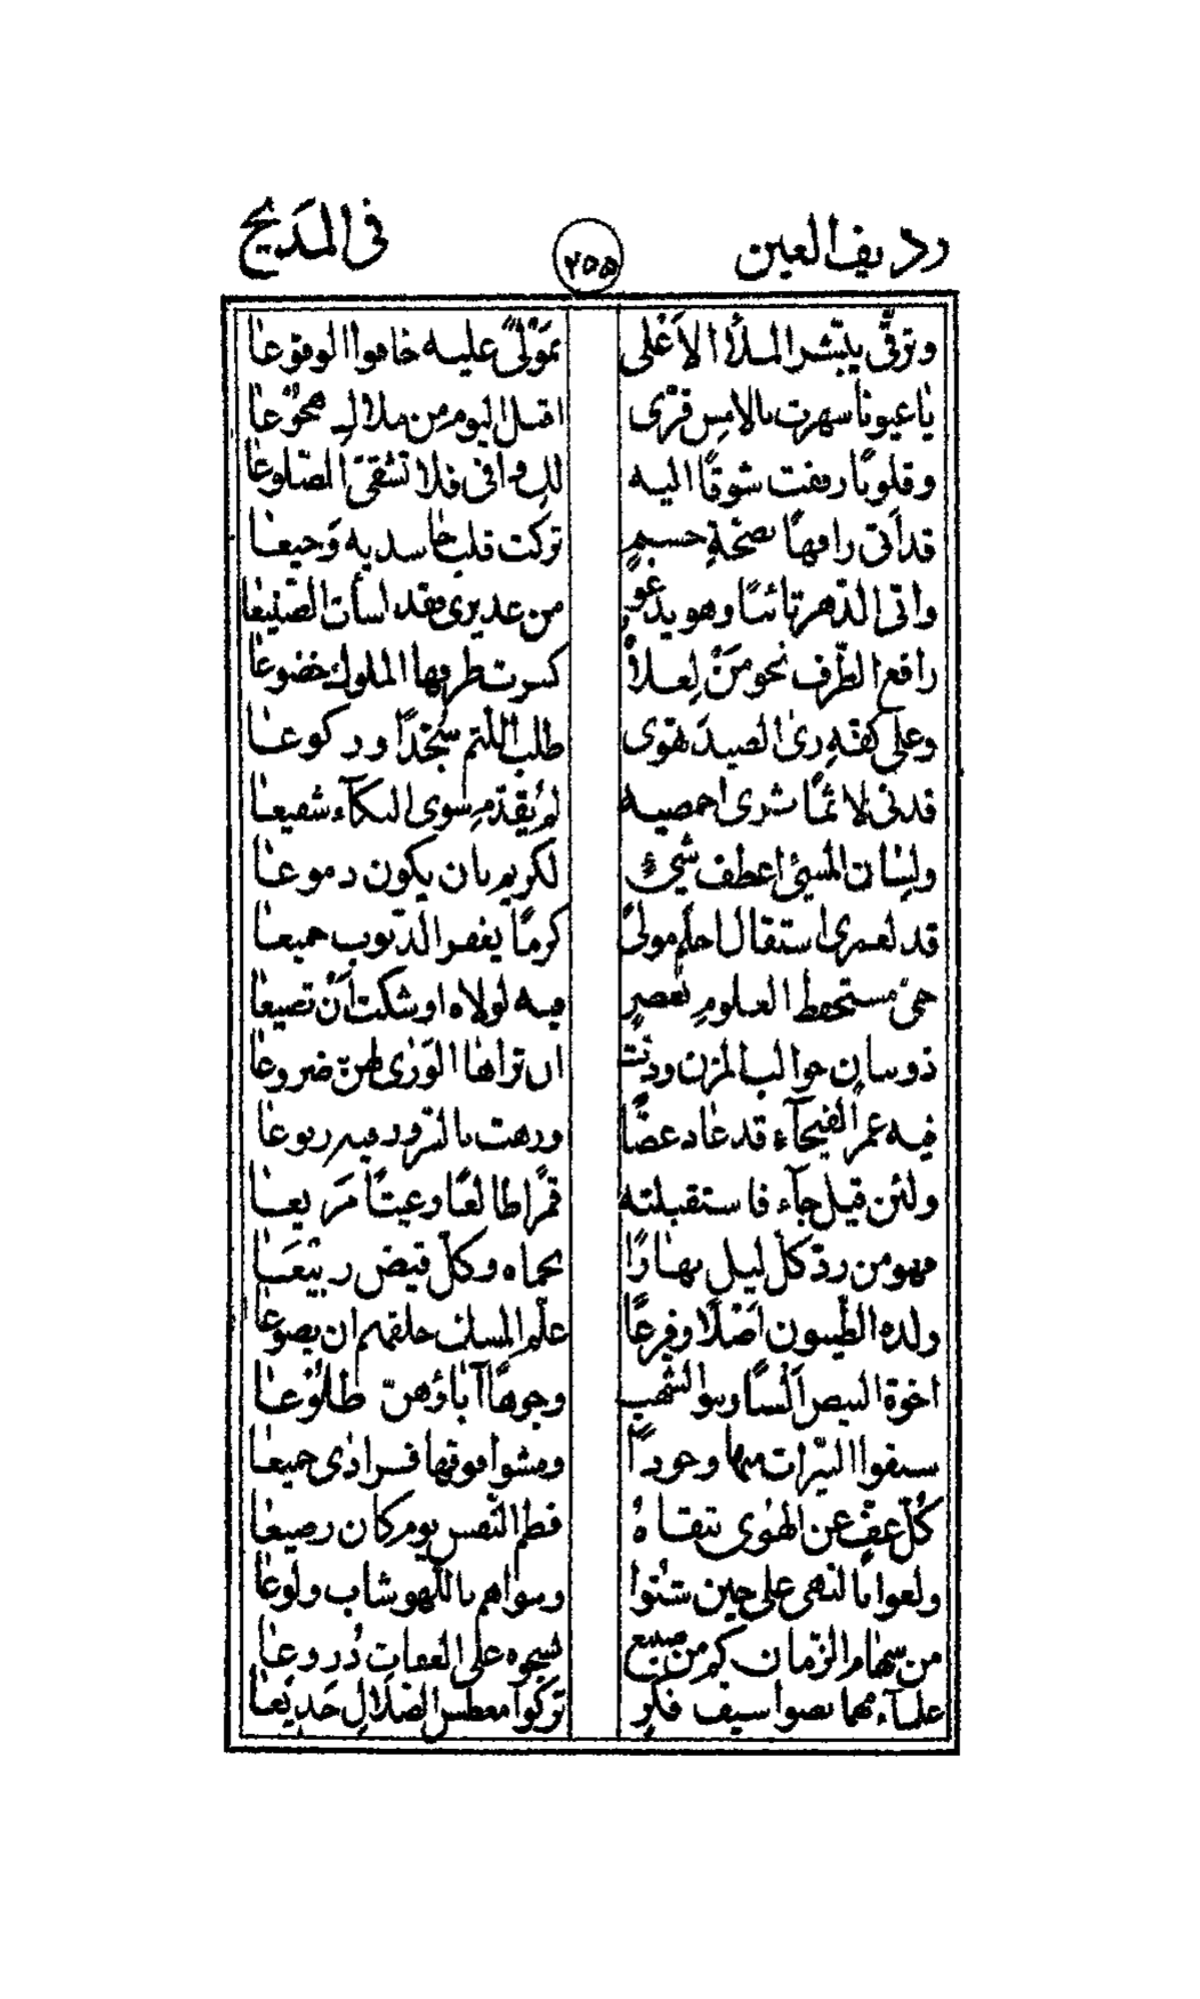 رديف العين ٢٥٥ في المَديح
وترقّى يبشّر الملأ الاَعْلى بمَوْلىً عليه خافوا الوقوعا
يا عيونا سهرت بالامس قرّى اقبل اليوم من
وقلوبًا رفّت شوقًا اليه لك وافى فلا تشقّى الضلوعا
قد أتى رافهًا بصحّةِ جسمٍ تركت قلب حاسديه وَجيعا
واتى الدّهر تائبًا وهو يدعو من عذيرى فقد اسأت الصّنيعا
رافع الطّرف نحو مَنْ لعلاه كسرت طرفها الملوك خضوعا
وعلى كفّه رى الصيدَ تهوى طلب اللّثم سُجّدًا وركوعا
قد نى لاثمًا شرى اخمصيه لم يُقدّم سوى البكآء شفيعا
ولسان المسئ اعطف شيءٍ لكريم بان يكون دموعا
قد لعمرى استقال احلم مولىً كرمًا يغفر الذّنوب جميعا
حىّ مستحفظ العلومِ لعصرٍ فيه لولاه اوشكت أنْ تضيعا
ذو بنان حوالب المزن ودّت ان تراها الوَرٰى لهنّ ضروعا
فيه عمر الفيحآء قد عاد غضًّا وزهت بالسّرور فيه ربوعا
ولئن قيل جآء فاستقبلته قمرًا طالعًا وغيثًا مَريعا
فهو من ردّ كلّ ليلٍ نهارًا بحماه وكلّ قيض ربيعَا
ولده الطّيبون اَصْلًا وفرعًا علّم المسك خلقهم ان يضوعا
اخوة البيض اَلْسنًا وبنو الشّهب وجوهًا آباؤهنّ طلُوْعا
سبقوا النيّرات منها وجودًا ومشوا فوقها فرادٰى جميعا
كلّ عفٍّ عن الهوٰى بتقاهُ فطم النّفس يوم كان رضيعا
ولعوا بالنهى على حين شبّوا وسواهم باللّهو شاب ولوعا
من سهام الزّمان كم من صنيع نسجوه على العفات دُروعا
علمآء مهما نضوا سيف فكرٍ تركوا معطس الضلالِ جَديعا